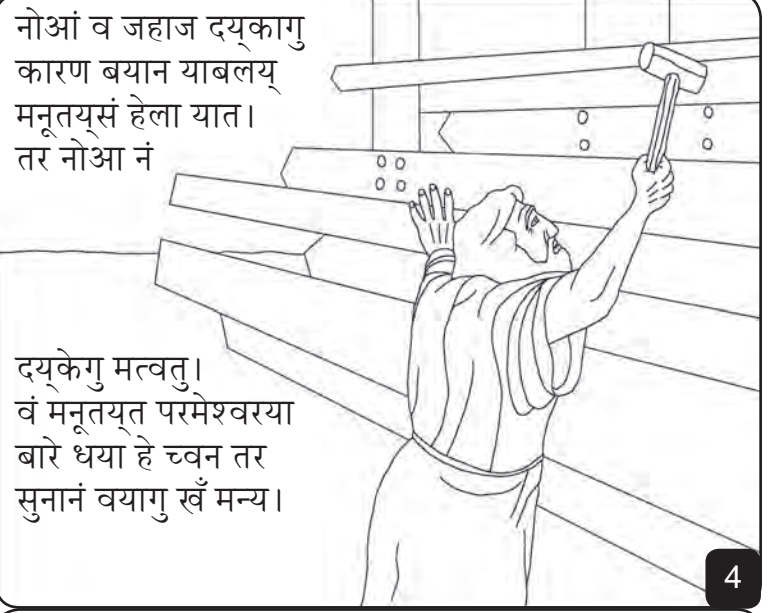 नोआं व जहाज दय्‌कागु
कारण बयान याबलय्
मनूतय्‌सं हेला यात।
तर नोआ नं
दय्‌केगु मत्वतु।
वं मनूतय्‌त परमेश्वरया
बारे धया हे च्वन तर
सुनानं वयागु खँ मन्य।
4